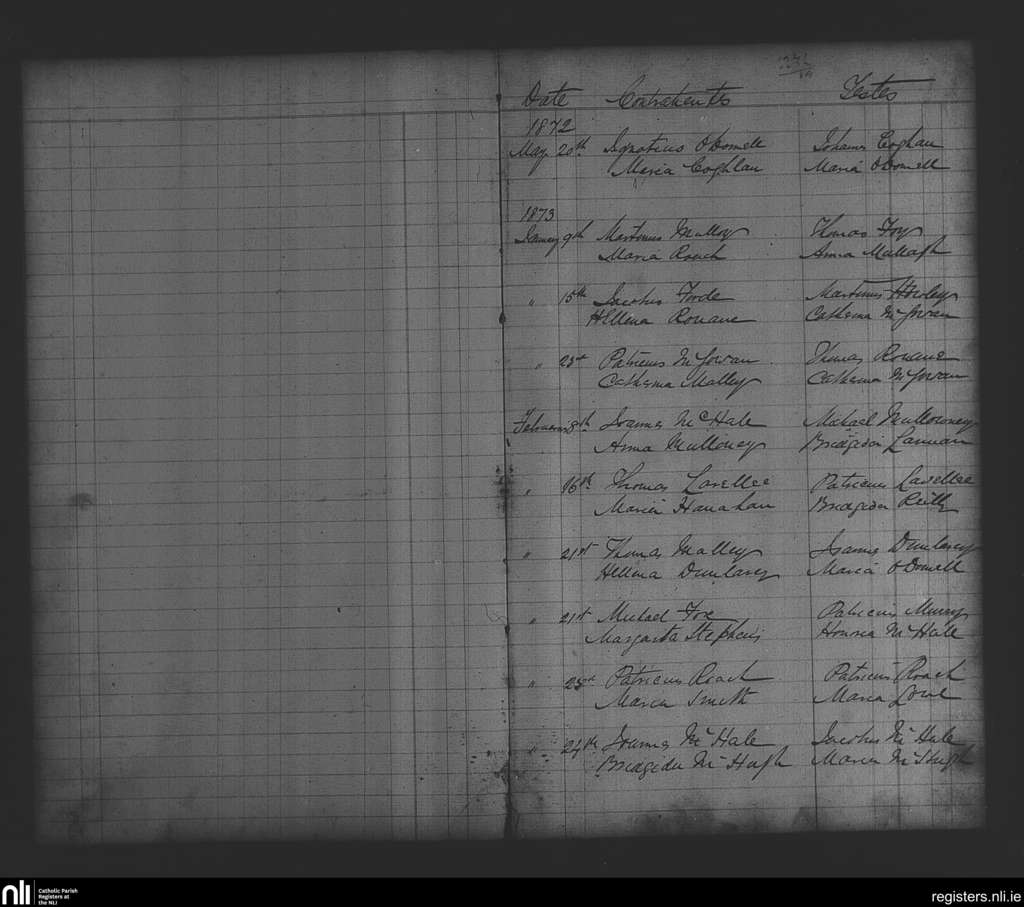 Date Contrahentes Testes
1872
May 20th Ignatius O'Donnell Johannes Coghlan
Maria Coghlan Maria O'Donnell
1873
January 9th Martinus Malloy Thomas Foy
Maria Roach Anna Mullagh
" 15th Jacobus Forde Martinus Howley
Hellena Rouane Catherina McGowan
" 23rd Patricius McGowan Thomas Rouane
Catherina Malley Catherina McGowan
February 8th Joannes McHale Michael Mullowney
Anna Mulloney Bridgida Lannan
" 16th Thomas Lavellee Patricius Lavellee
Maria Hanahan Bridgida Reilly
" 21st Thomas Malley Joannes Dunleavy
Hellena Dunleavy Maria O'Donnell
" 21st Michael Foy Patricius Murry
Margarita Stephens Honoria McHale
" 23rd Patricius Roach Patricius Roach
Maria Smith Maria
" 24th Joannes McHale Jacobus McHale
Bridgida McHugh Maria McHugh
nli
Catholic Parish
Registers at
the NLI
registers.nli.ie